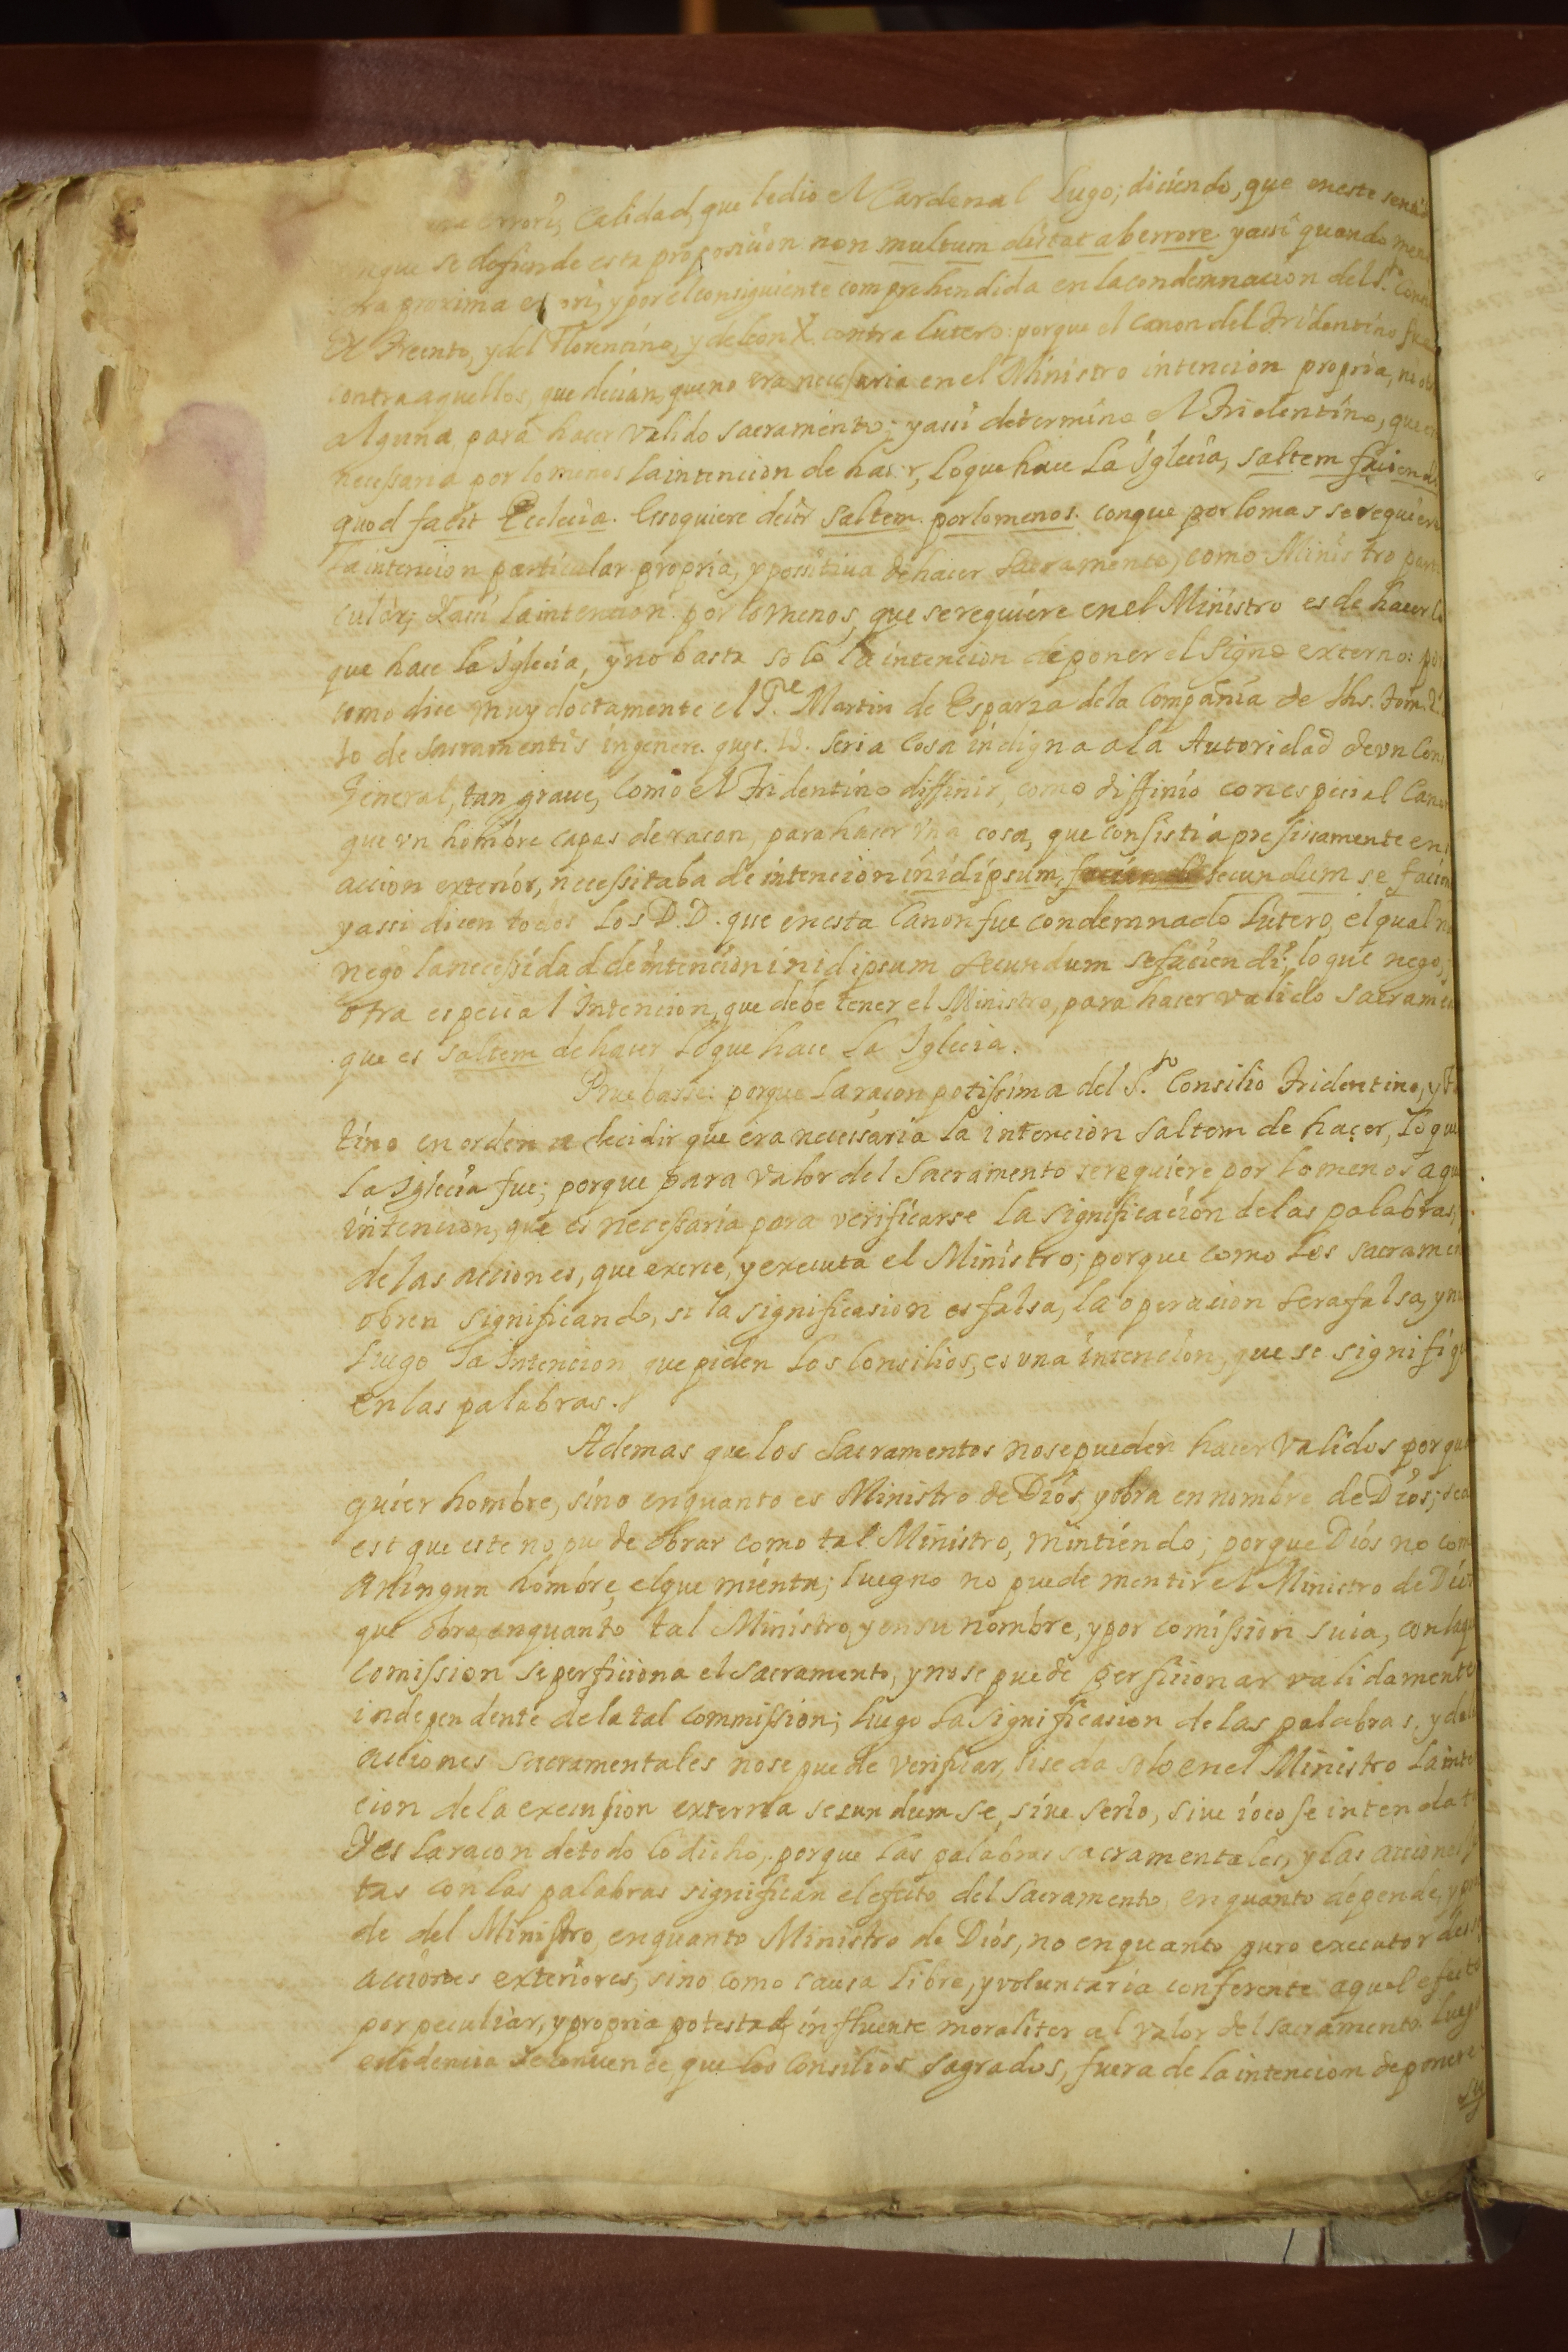 errori; Calidad, que le dio el Cardenal Lugo; diciendo, que en este
se defiende esta proposicion non multum distat ab errore. y assi quando
proxima errori, y por el consiguiente comprehendida en la condemnacion del S.to
de Trento, y del Florentino, y de Leon X. contra Lutero: porque el canon del Tridentino
contra aquellos, que decian, que no era necessaria en el Ministro intencion propria, ni
alguna para hacer valido sacramento; y assi determino el Tridentino, que
necessaria por lo menos la intencion de hacer, lo que hace La Iglecia, saltem faciendi
quod facit Eclecia. Esso quiere decir saltem. por lo menos. con que por lo mas se requiere
la intencion particular propria, y possitiua de hacer Sacramento, como Ministro
cular; Y assi la intencion. por lo menos, que se requiere en el Ministro es de hacer lo
que hace La Iglecia, y no basta solo la intencion de poner el Signo externo:
como dice muy doctamente el P.e Martin de Esparza de la Compañia de Jhs. tom. 2.
to de Sacramentis in genere. ques. 13. seria cosa indigna a la Autoridad de vn
General, tan graue, como el Tridentino diffinir, como diffinio con especial
que vn hombre capas de racon, para hacer vna cosa, que consistia presisamente en
accion exterior, necessitaba de intencion in id ipsum, secundum se
y assi dicen todos los D.D. que en esta Canon fue condemnado Lutero, el qual
nego la necessidad de intencion in id ipsum secundum se faciendi; lo que nego,
otra especial Intencion, que debe tener el Ministro, para hacer valido
que es saltem de hacer lo que hace La Iglecia.
Pruebasse: porque la racon potissima del S.to Consilio Tridentino, y
tino en orden a decidir que era necessaria la intencion saltem de hacer, lo que
La Iglecia fue; porque para valor del Sacramento se requiere por lo menos
intencion, que es necessaria para verificarse la significacion de las palabras,
de las acciones, que exerce, y executa el Ministro; porque como los
obren significando, si la significasion es falsa, la operacion sera falsa, y
Luego la Intencion que piden los Consilios, es vna intencion, que se
en las palabras.
Ademas que los Sacramentos no se pueden hacer validos por
quier hombre, sino enquanto es Ministro de Dios, y obra en nombre de Dios;
est que este no puede obrar como tal Ministro, mintiendo; porque Dios no
a Ningun hombre, el que mienta; luego no puede mentir el Ministro de
que obra enquanto tal Ministro, y en su nombre, y por comission suia, con
comission se perficiona el sacramento, y no se puede perficionar validamente
independente de la tal commission; Luego la significasion de las palabras, y
acciones sacramentales no se puede verificar, si se da solo en el Ministro
cion de la execusion externa secundum se, siue serio, siue iocose
Y es la racon de todo lo dicho, porque las palabras sacramentales, y las acciones
tas con las palabras significan el efecto del Sacramento, enquanto depende,
de del Ministro, enquanto Ministro de Dios, no enquanto puro executor
acciones exteriores; sino como causa libre, y voluntaria conferente aquel efecto
por peculiar, y propria potestad influente moraliter al valor del sacramento. Luego
euidencia se conuence, que los Consilios Sagrados, fuera de la intencion de poner